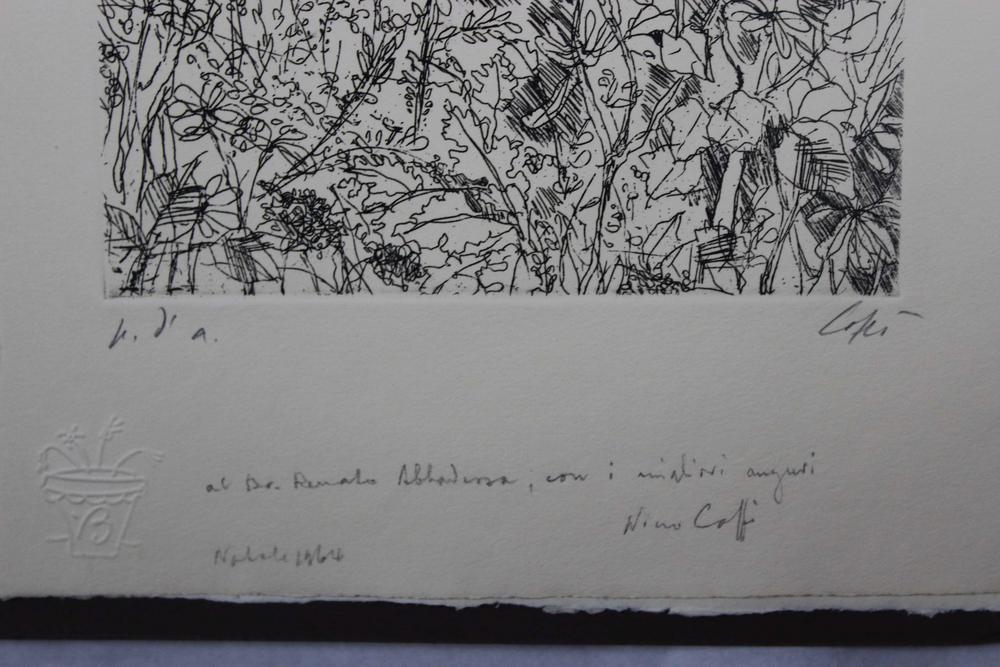 p. d' a.
al Dr. Renato, con i migliori auguri
Nino Caffi
Natale 1964
B